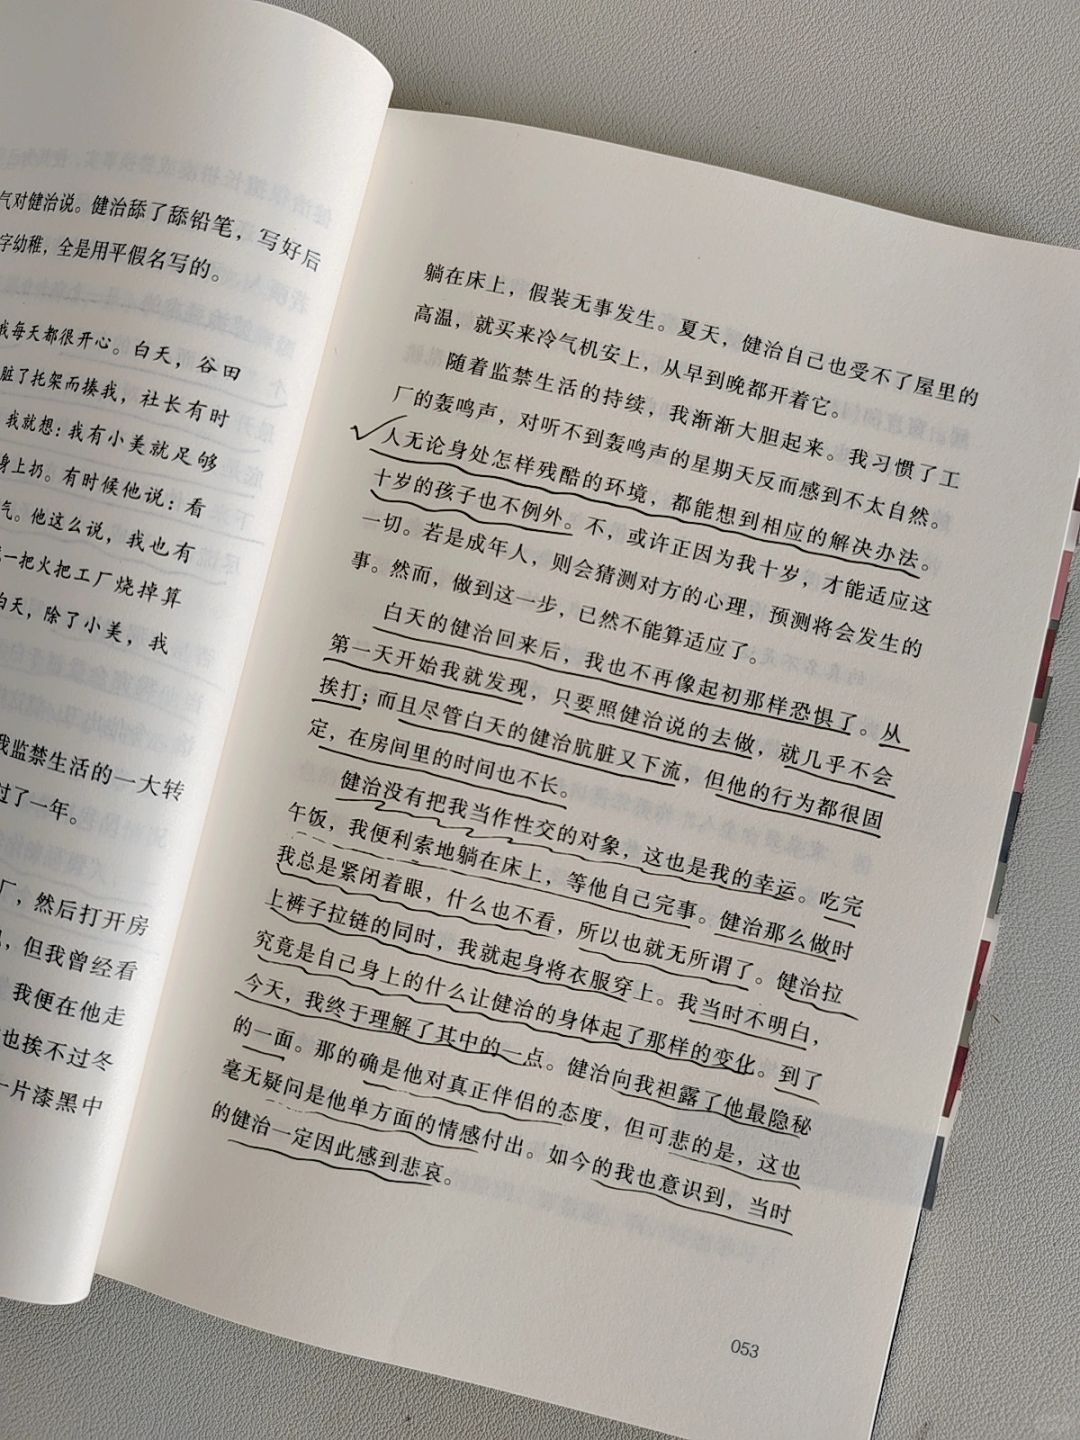 气对健治说。健治舔了舔铅笔，写好后
字幼稚，全是用平假名写的。
我每天都很开心。白天，谷田
脏了托架而揍我，社长有时
我就想：我有小美就足够
身上扔。有时候他说：看
气。他这么说，我也有
一把火把工厂烧掉算
白天，除了小美，我
我监禁生活的一大转
过了一年。
厂，然后打开房
但我曾经看
我便在他走
也挨不过冬
一片漆黑中
躺在床上，假装无事发生。夏天，健治自己也受不了屋里的
高温，就买来冷气机安上，从早到晚都开着它。
随着监禁生活的持续，我渐渐大胆起来。我习惯了工
厂的轰鸣声，对听不到轰鸣声的星期天反而感到不太自然。
人无论身处怎样残酷的环境，都能想到相应的解决办法。
十岁的孩子也不例外。不，或许正因为我十岁，才能适应这
一切。若是成年人，则会猜测对方的心理，预测将会发生的
事。然而，做到这一步，已然不能算适应了。
白天的健治回来后，我也不再像起初那样恐惧了。从
第一天开始我就发现，只要照健治说的去做，就几乎不会
挨打；而且尽管白天的健治肮脏又下流，但他的行为都很固
定，在房间里的时间也不长。
健治没有把我当作性交的对象，这也是我的幸运。吃完
午饭，我便利索地躺在床上，等他自己完事。健治那么做时
我总是紧闭着眼，什么也不看，所以也就无所谓了。健治拉
上裤子拉链的同时，我就起身将衣服穿上。我当时不明白，
究竟是自己身上的什么让健治的身体起了那样的变化。到了
今天，我终于理解了其中的一点。健治向我袒露了他最隐秘
的一面。那的确是他对真正伴侣的态度，但可悲的是，这也
毫无疑问是他单方面的情感付出。如今的我也意识到，当时
的健治一定因此感到悲哀。
053